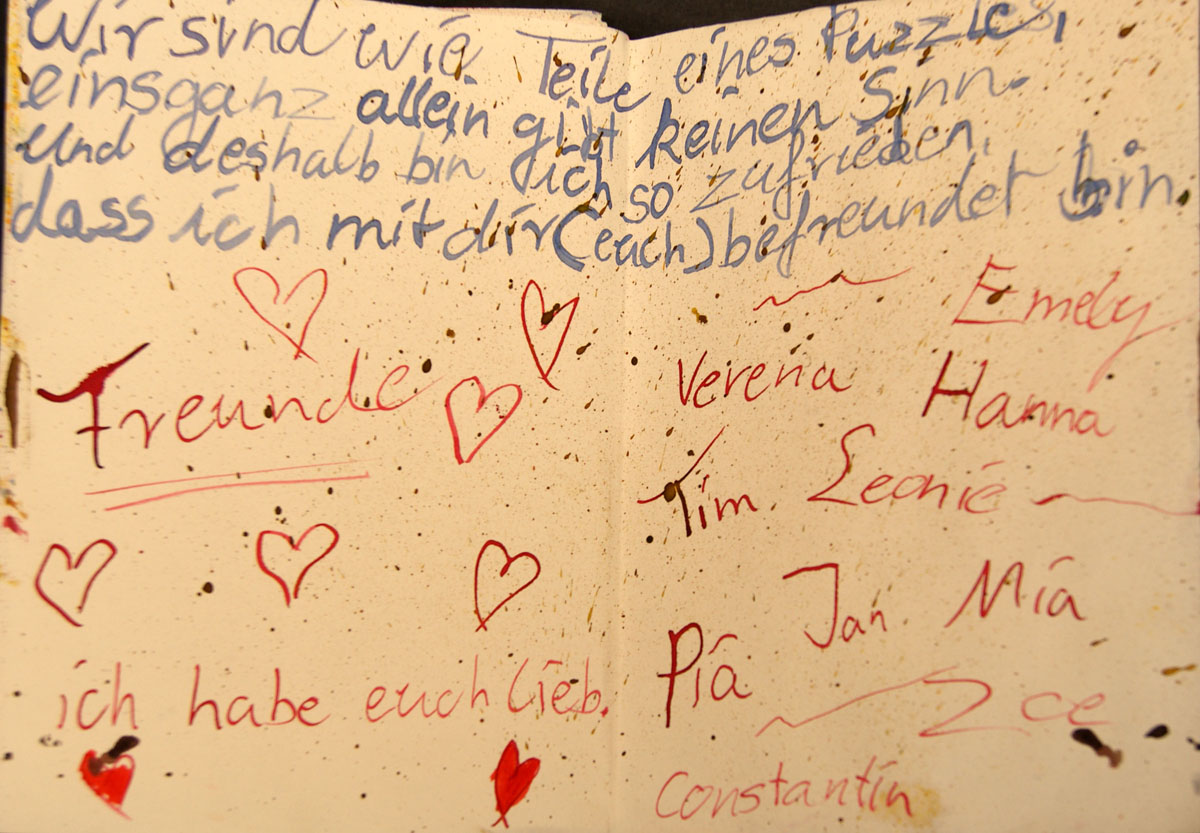 Wir sind wie Teile eines Puzzles,
einsganz allein gibt keinen Sinn.
Und deshalb bin ich so zufrieden,
dass ich mit dir (euch) befreundet bin.
Freunde
ich habe euch lieb.
Emely
Verena Hanna
Tim Leonie
Jan Mia
Pia
Zoe
Constantin